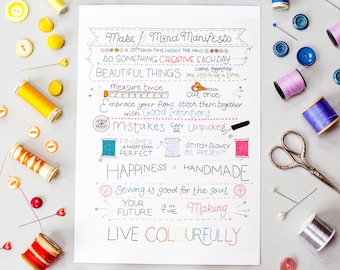 Make & Mend Manifesto
A STITCH IN TIME INSPIRES THE MIND
DO SOMETHING CREATIVE EACH DAY
BEAUTIFUL THINGS come together one stitch at a time
Measure twice cut once
Embrace your flaws stitch them together
with Good Intentions
MISTAKES CAN BE Unpicked
FINISHED is better than PERFECT
STITCH SLOWLY BE PRESENT
HAPPINESS HANDMADE
Sewing is good for the soul
YOUR FUTURE IS IN THE Making
LIVE COLOURFULLY